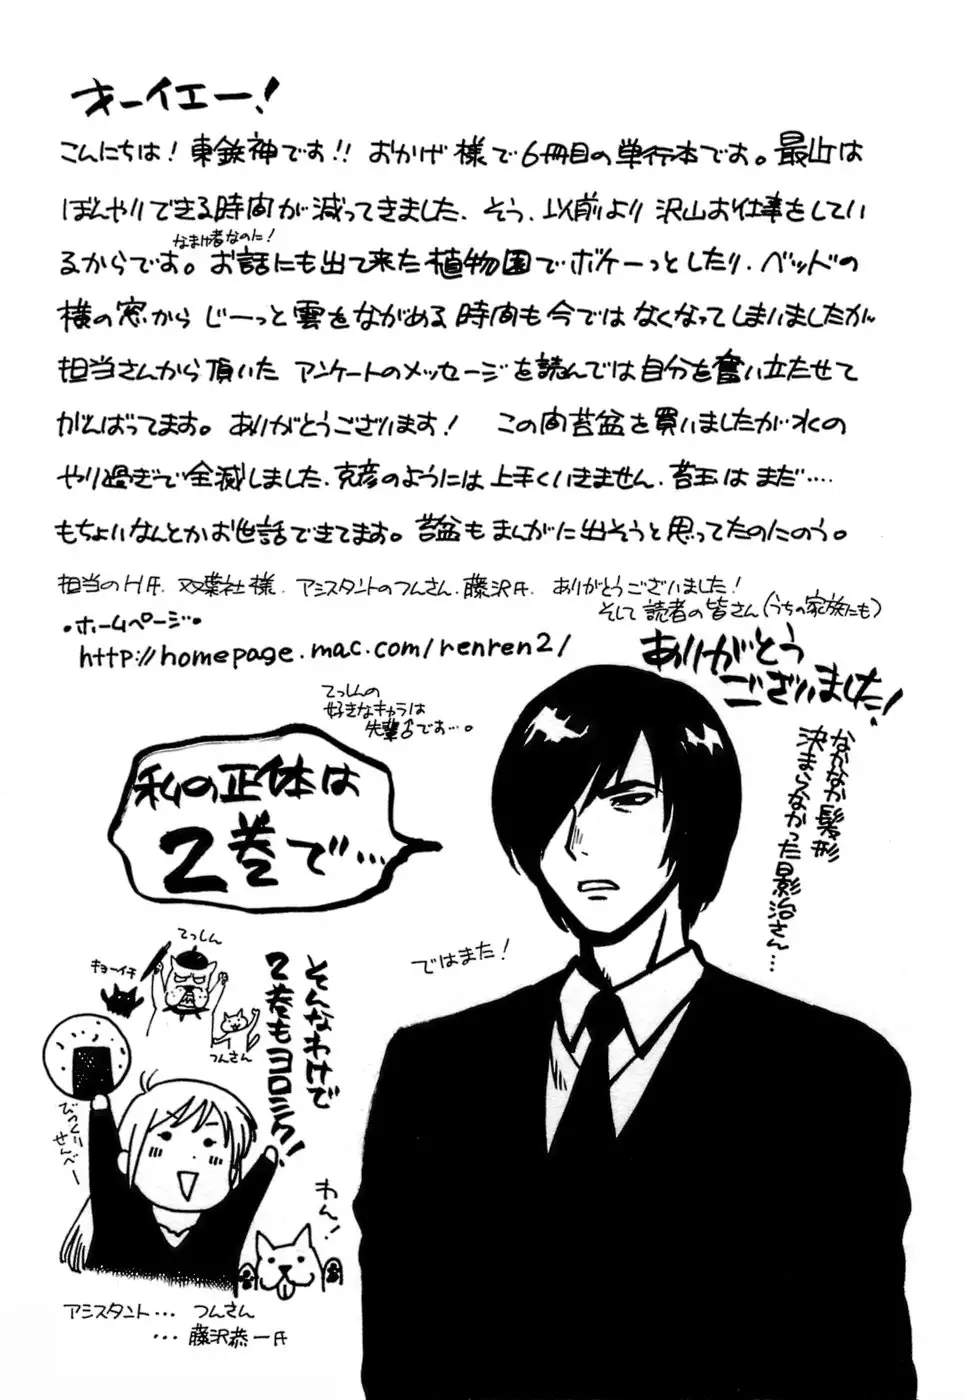 オーイエー!
こんにちは!東鉄神です!!おかげ様で6冊目の単行本です。最近は
ぼんやりできる時間が減ってきました、そう、以前より沢山お仕事をしてい
なまけ者なのに!
るからです。お話にも出て来た植物園でボケーっとしたり、ベッドの
横の窓からじーっと雲をながめる時間も今ではなくなってしまいましたが
担当さんから頂いたアンケートのメッセージを読んでは自分を奮い立たせて
がんばってます。ありがとうございます! この間苔盆を買いましたが水の
やり過ぎで全滅しました、克彦のようには上手くいきません、苔玉はまだ‥‥
もちょいなんとかお世話できてます。苔盆もまんがに出そうと思ってたのにのう。
担当のH氏、双葉社様、アシスタントのつんさん、藤沢氏、ありがとうございました!
そして読者の皆さん(うちの家族にも)
ありがとう
ございました!
・ホームページ・
http://homepage.mac.com/renren2/
てっしんの
好きなキャラは
先輩♂です…。
私の正体は
2巻で…
なかなか髪形
決まらなかった影治さん…
ではまた!
そんなわけで
2巻もヨロシク!
てっしん
キョーイチ
つんさん
びっくり
せんべー
わん!
アシスタント… つんさん
… 藤沢恭一氏